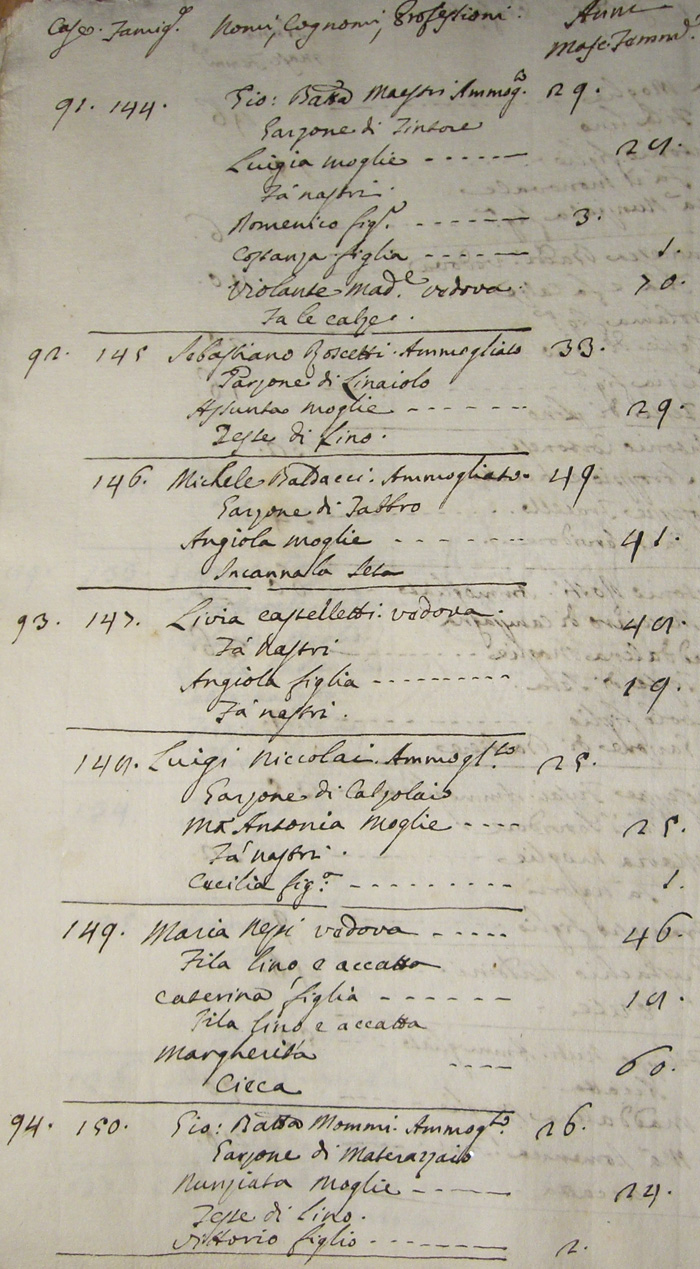 Case. Famig.e Nomi, Cognomi, Professioni. Anni
Masc. Femm.e
91. 144. Gio: Batta Maestri Ammog.o 29.
Garzone di Tintore
Luigia moglie ------ 28.
Fà nastri.
Domenico fig.o ------ 3.
Costanza figlia ------ 1.
Violante Mad.e vedova. 70.
Fa le calze.
92. 145 Sebastiano Boscetti. Ammogliato 33.
Garzone di Linaiolo
Assunta moglie ------ 29.
Tesse di Lino.
146. Michele Baldacci. Ammogliato. 49
Garzone di Fabbro
Angiola moglie ------ 41.
Incanna la Seta
93. 147. Livia castelletti. vedova. 48.
Fà Nastri
Angiola figlia ------ 19.
Fà nastri.
148. Luigi Niccolai. Ammogl.to 25.
Garzone di Calzolaio
M.a Antonia Moglie ---- 25.
Fà nastri.
Cecilia fig.a ------ 1.
149. Maria Nessi vedova ----- 46.
Fila lino e accatta
Caterina figlia ------ 18.
Fila lino e accatta
Margherita ---- 60.
Cieca
94. 150. Gio: Batta Mommi. Ammog.to 26.
Garzone di Materazzaio
Nunziata Moglie ------ 24.
Tesse di Lino.
Vittorio figlio ------ 2.